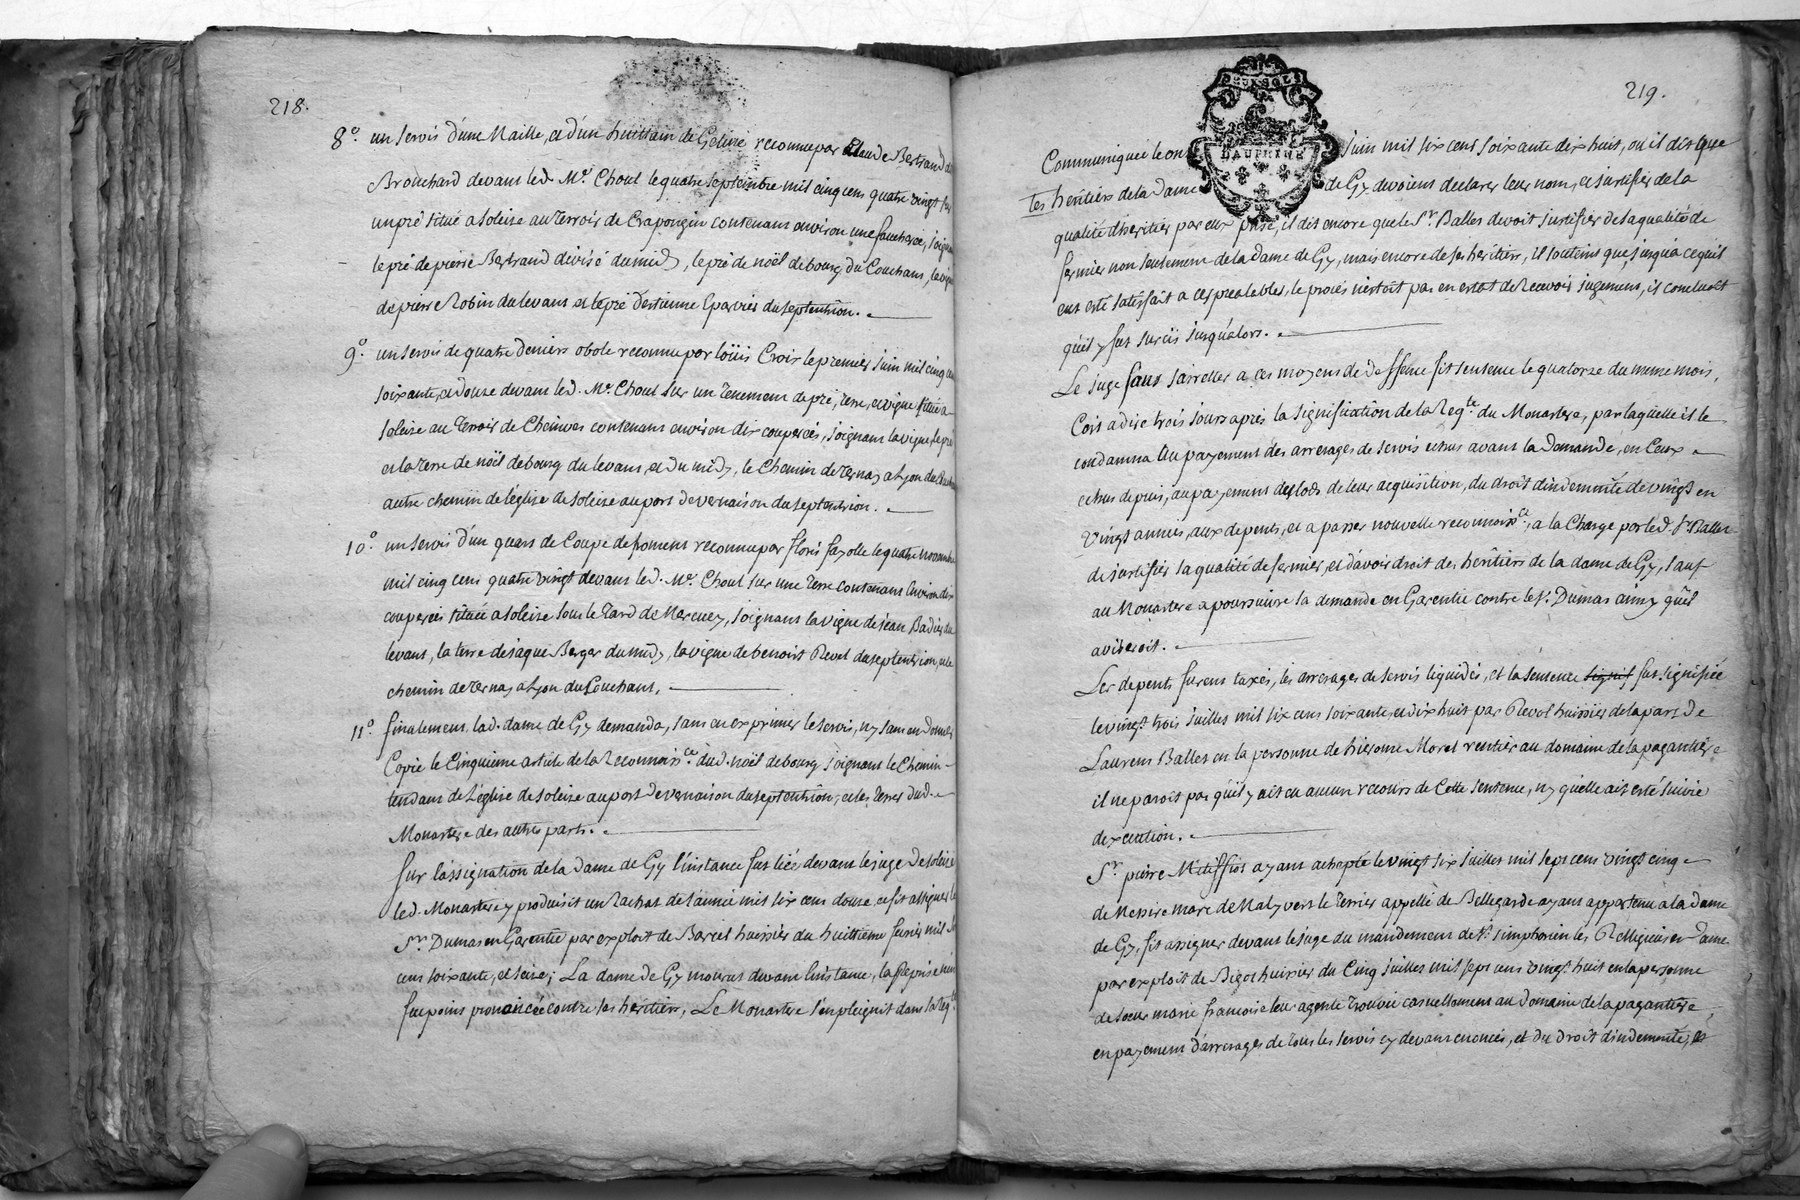 218.
8º un servis d'une Maille, et d'un huittain de Geline reconnu par Claude Bertrand
Brouchard devant led. Me. Choul le quatre septembre mil cinq cens quatre vingt sur
un pré situé a soleise au terroir de Crapongin contenant environ une faucheree, joignan
le pré de pierre Bertrand divisé du midy, le pré de noël debourg du Couchant, la vigne
de pierre Robin du levant et le pré d'estienne Eparvier du septentrion.
9º. un servis de quatre deniers obole reconnu par loüis Croix le premier juin mil cinq cen
soixante, et douze devant led. Me. Choul sur un tenement de pré, terre, et vigne situé a
soleise au terroir de Cheinves contenant environ dix couperées, joignant la vigne, le pré
et la terre de noël debourg du levant, et du midy, le Chemin de ternay a Lyon du
autre chemin de l'église de soleise au port de vernaison du septentrion.
10º un servis d'un quart de Coupe de froment reconnu par floris fayolle le quatre novembre
mil cinq cens quatre vingt devant led. Me. Choul sur une terre contenant environ dix
couperées située a soleise sous le tard de Mercuey, joignant la vigne de jean Badin du
levant, la terre de jaque Berger du midy, la vigne de benoist Revol du septentrion, et le
chemin de ternay a Lyon du Couchant.
11º finalement lad. dame de Gy demanda, sans en exprimer le servis, ny sans en donner
Copie le Cinquieme article de la Reconnoisce. dud. noël debourg joignant le Chemin
tendant de l'église de soleise au port de vernaison du septentrion, et les terres dud.
Monastere des autres parts.
Sur l'assignation de la dame de Gy l'instance fut liée devant le juge de soleise
led. Monastere y produisit un Rachat de l'année mil six cens douze, et fit assigner le
Sr. Dumas en Garentie par exploit de Barcel huissier du huittieme fevrier mil six
cens soixante, et seize; La dame de Gy mourut durant l'instance, la Reprise ne
fut point prononcée contre ses heritiers, Le Monastere s'en pleignit dans la Reqte.
219.
DEUX SOLS
DAUPHINE
Communiquée le juin mil six cent soixante dix huit, ou il dit que
les heritiers de la dame de Gy devoient declarer leur nom, et justifier de la
qualité d'heritier par eux prise, il dit encore que le Sr. Balles devoit justifier de la qualité de
fermier non seulement de la dame de Gy, mais encore de ses héritiers, il soutenit que jusqu'a ce qu'il
eut esté satisfait a ces prealables, le procés n'estoit pas en estat de Recevoir jugement, il concluoit
qu'il y fut surcis jusqu'alors.
Le juge sans s'arreter a ces moyens de deffense fit sentence le quatorze du meme mois,
C'est a dire trois jours aprés la signification de la Reqte. du Monastere, par laquelle il le
condamna au payement des arrerages de servis echus avant la demande, en Ceux
echus depuis, au payement des lods de leur acquisition, du droit d'indemnité de vingt en
vingt années, aux depents, et a passer nouvelle reconnoisce, a la Charge par led. Sr. Balles
de justifier sa qualité de fermier, et d'avoir droit des héritiers de la dame de Gy, sauf
au Monastere a poursuivre sa demande en Garentie contre le Sr. Dumas ainsy qu'il
aviseroit.
Les depents furent taxés, les arrerages de servis liquidés, et la sentence signif fut signifiée
le vingt trois juillet mil six cens soixante, et dix huit par Revol huissier de la part de
Laurent Balles en la personne de hierome Morel rentier au domaine de la pagantiere
il ne paroît pas qu'il y ait eu aucun recours de Cette sentence, ny qu'elle ait esté suivie
d'execution.
Sr. pierre Mitiffiot ayant achepté le vingt six juillet mil sept cens vingt cinq
de Messire marc de Maly vers le terrier appellé de Bellegarde ayant appartenu a la dame
de Gy, fit assigner devant le juge du mandement de St. simphorien les Religieuses Dame
par exploit de Bigot huissier du Cinq juillet mil sept cens vingt huit en la personne
de soeur marie françoise leur agente trouvée casuellement au domaine de la pagantiere,
en payement d'arrerages de tous les servis cy devant enoncés, et du droit d'indemnité, et